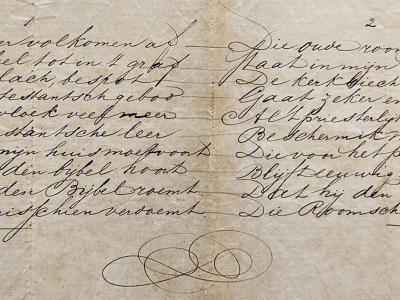 1
2
er volkomen af
el tot in 't graf
lach bespot
testantsch geboo
vloek veel meer
stantsche leer
mijn huis moet voort
den bybel hoort
den Bijbel roemt
verdoemt
Die oude roo
Staat in mijn
De kerk biech
Gaat zeker en
Alt priesterlij
Bescherm ik
Die voor het p
Blijft eeuwig
Dat hij den
Die Roomsch